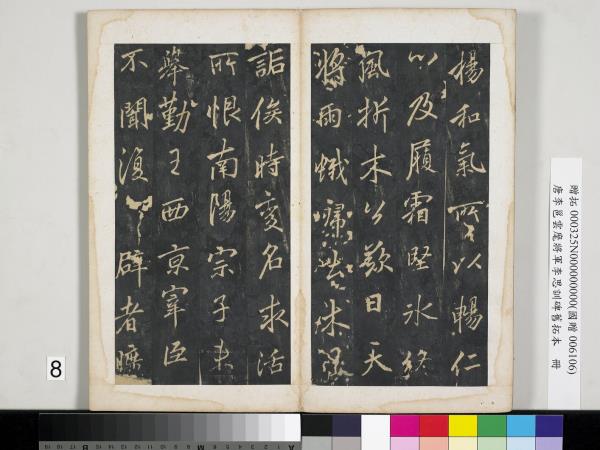 揚和氣所以暢仁
心及履霜堅冰終
風折木公歎曰天
將雨蟻
詬俟時變名求活
所恨南陽宗子未
舉勤王西京宰臣
不聞復辟者曠
贈拓 000325N000000000(國贈 006106)
唐李邕雲麾將軍李思訓碑舊拓本 冊
8